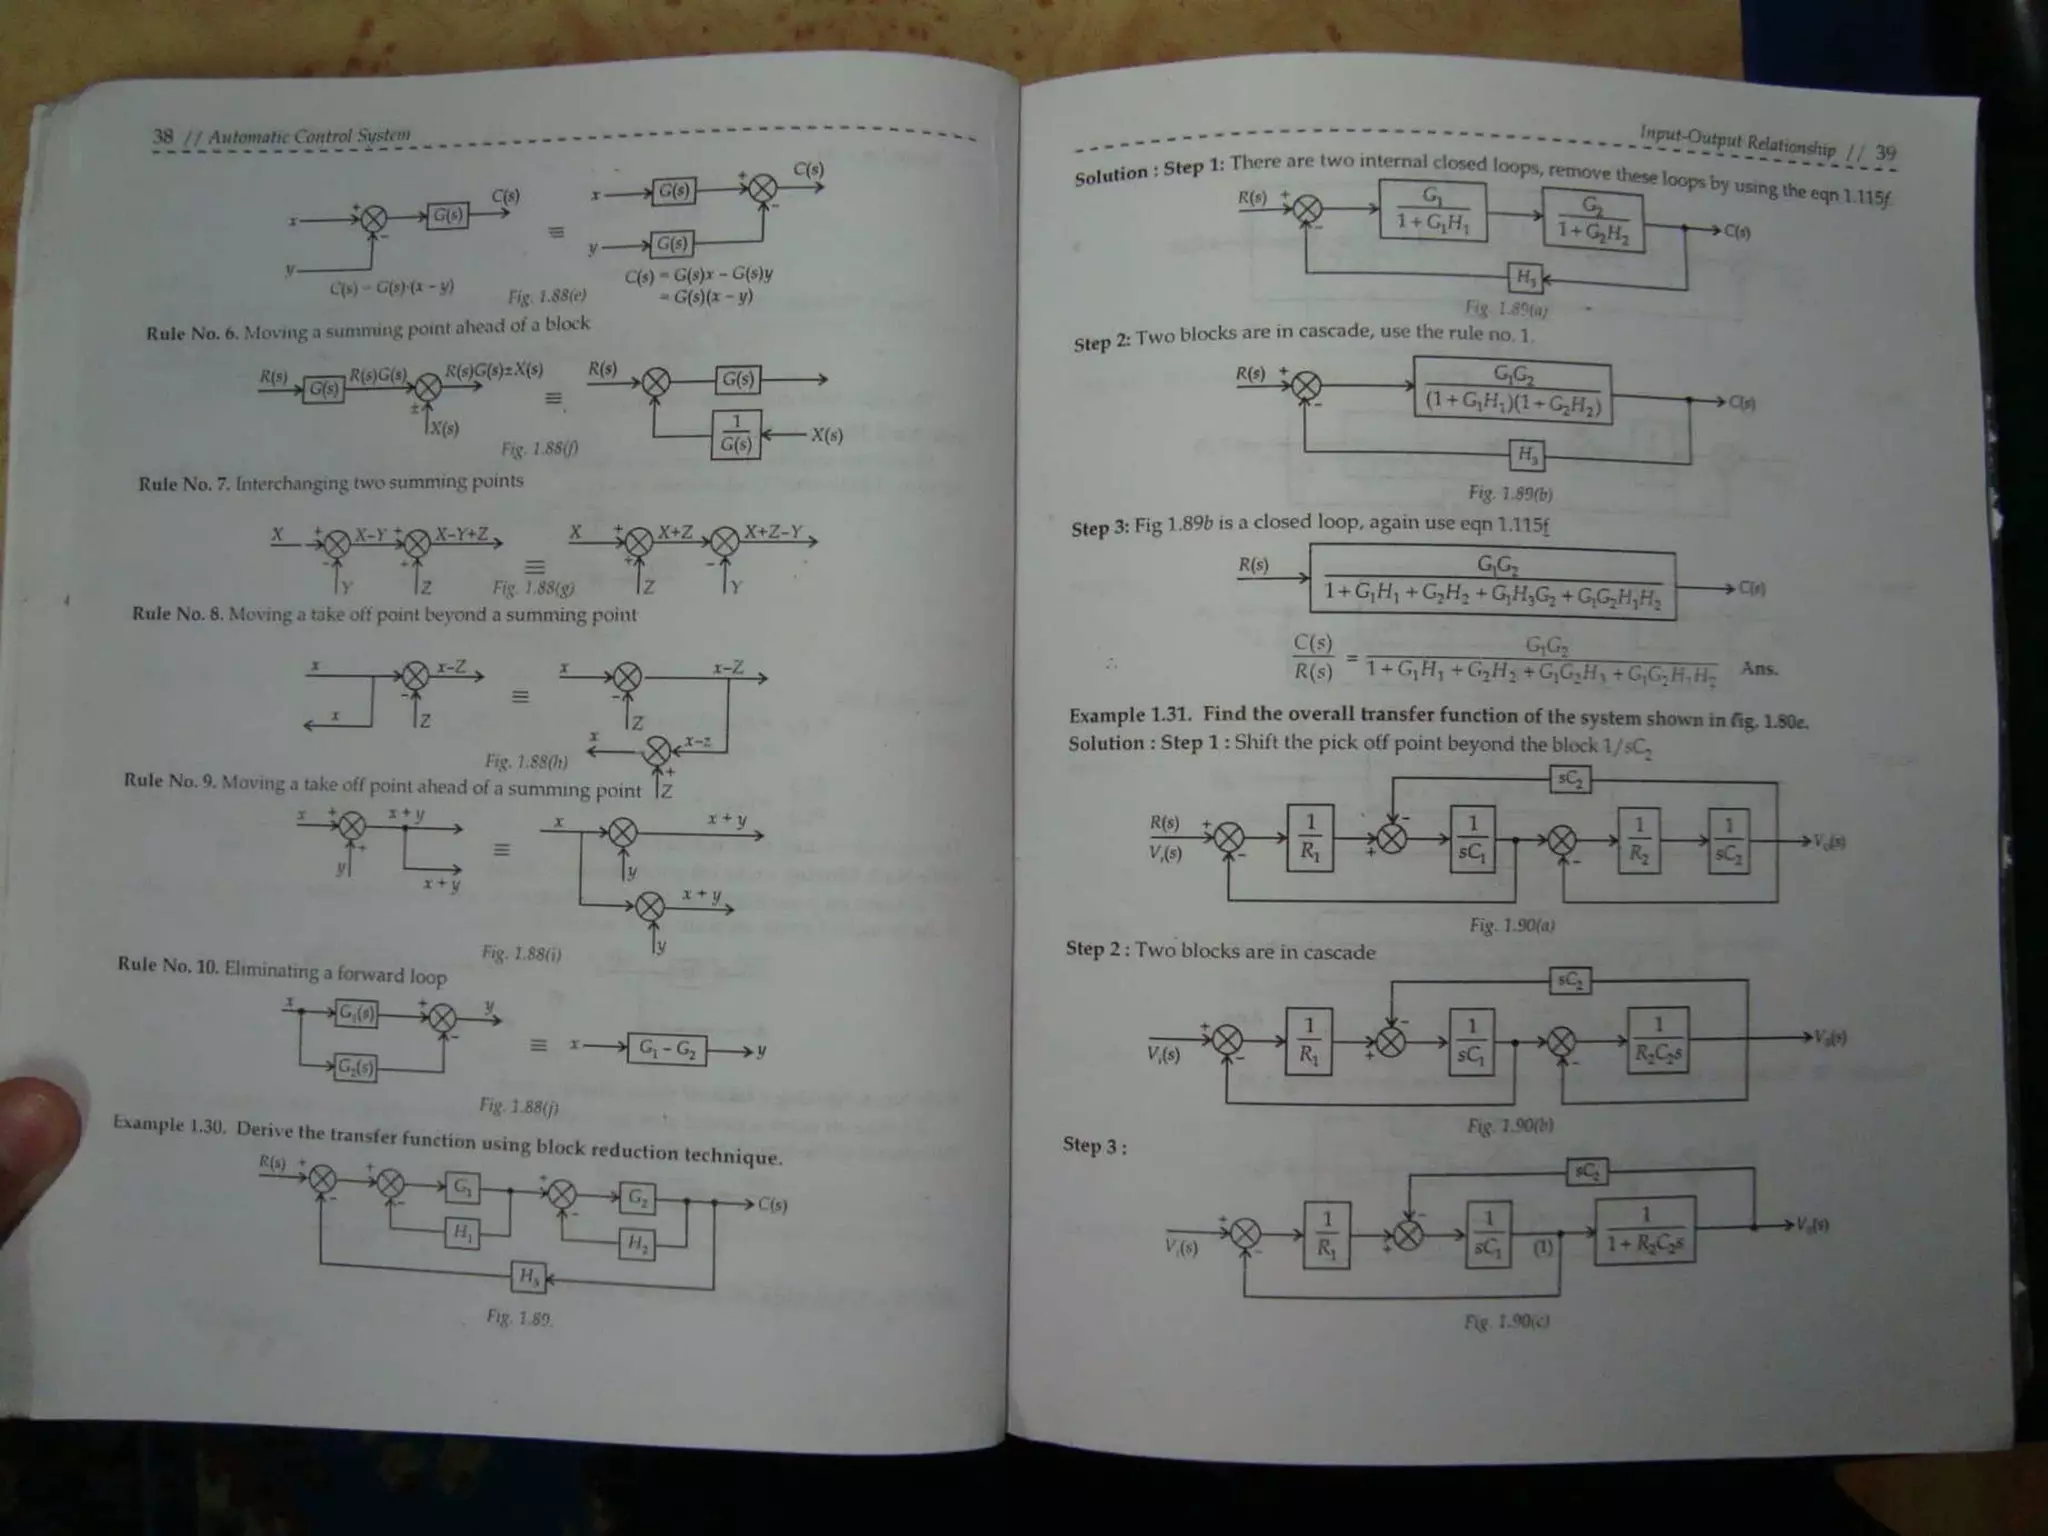 38 // Automatic Control System
x + − G(s) C(s) ≡ x G(s) + C(s)
y − y G(s)
C(s) = G(s)·(x − y)
Fig. 1.88(e)
C(s) = G(s)x − G(s)y
= G(s)(x − y)
Rule No. 6. Moving a summing point ahead of a block
R(s) G(s) R(s)G(s) R(s)G(s)±X(s) ≡ R(s) G(s)
± X(s) 1/G(s) X(s)
Fig. 1.88(f)
Rule No. 7. Interchanging two summing points
X + X−Y + X−Y+Z ≡ X + X+Z X+Z−Y
− Y + Z + Z − Y
Fig. 1.88(g)
Rule No. 8. Moving a take off point beyond a summing point
x x−Z ≡ x x−Z
x − Z − Z
x x−z
+ Z
Fig. 1.88(h)
Rule No. 9. Moving a take off point ahead of a summing point
x + x + y ≡ x x + y
y + x + y y
x + y
y
Fig. 1.88(i)
Rule No. 10. Eliminating a forward loop
x G₁(s) + y ≡ x G₁ − G₂ y
G₂(s) −
Fig. 1.88(j)
Example 1.30. Derive the transfer function using block reduction technique.
R(s) + + G₁ + G₂ C(s)
− − H₁ − H₂
H₃
Fig. 1.89.
Input-Output Relationship // 39
Solution : Step 1: There are two internal closed loops, remove these loops by using the eqn 1.115f.
R(s) + − G₁/(1 + G₁H₁) G₂/(1 + G₂H₂) C(s)
H₃
Fig. 1.89(a)
Step 2: Two blocks are in cascade, use the rule no. 1.
R(s) + − G₁G₂/((1 + G₁H₁)(1 + G₂H₂)) C(s)
H₃
Fig. 1.89(b)
Step 3: Fig 1.89b is a closed loop, again use eqn 1.115f
R(s) G₁G₂/(1 + G₁H₁ + G₂H₂ + G₁H₃G₂ + G₁G₂H₁H₂) C(s)
∴ C(s)/R(s) = G₁G₂/(1 + G₁H₁ + G₂H₂ + G₁G₂H₃ + G₁G₂H₁H₂) Ans.
Example 1.31. Find the overall transfer function of the system shown in fig. 1.80e.
Solution : Step 1 : Shift the pick off point beyond the block 1/sC₂
sC₂
R(s) + − 1/R₁ + − 1/sC₁ − 1/R₂ 1/sC₂ V₀(s)
Vᵢ(s)
Fig. 1.90(a)
Step 2 : Two blocks are in cascade
sC₂
Vᵢ(s) + − 1/R₁ + − 1/sC₁ − 1/R₂C₂s V₀(s)
Fig. 1.90(b)
Step 3 :
sC₂
Vᵢ(s) + − 1/R₁ + − 1/sC₁ (1) 1/(1 + R₂C₂s) V₀(s)
Fig. 1.90(c)